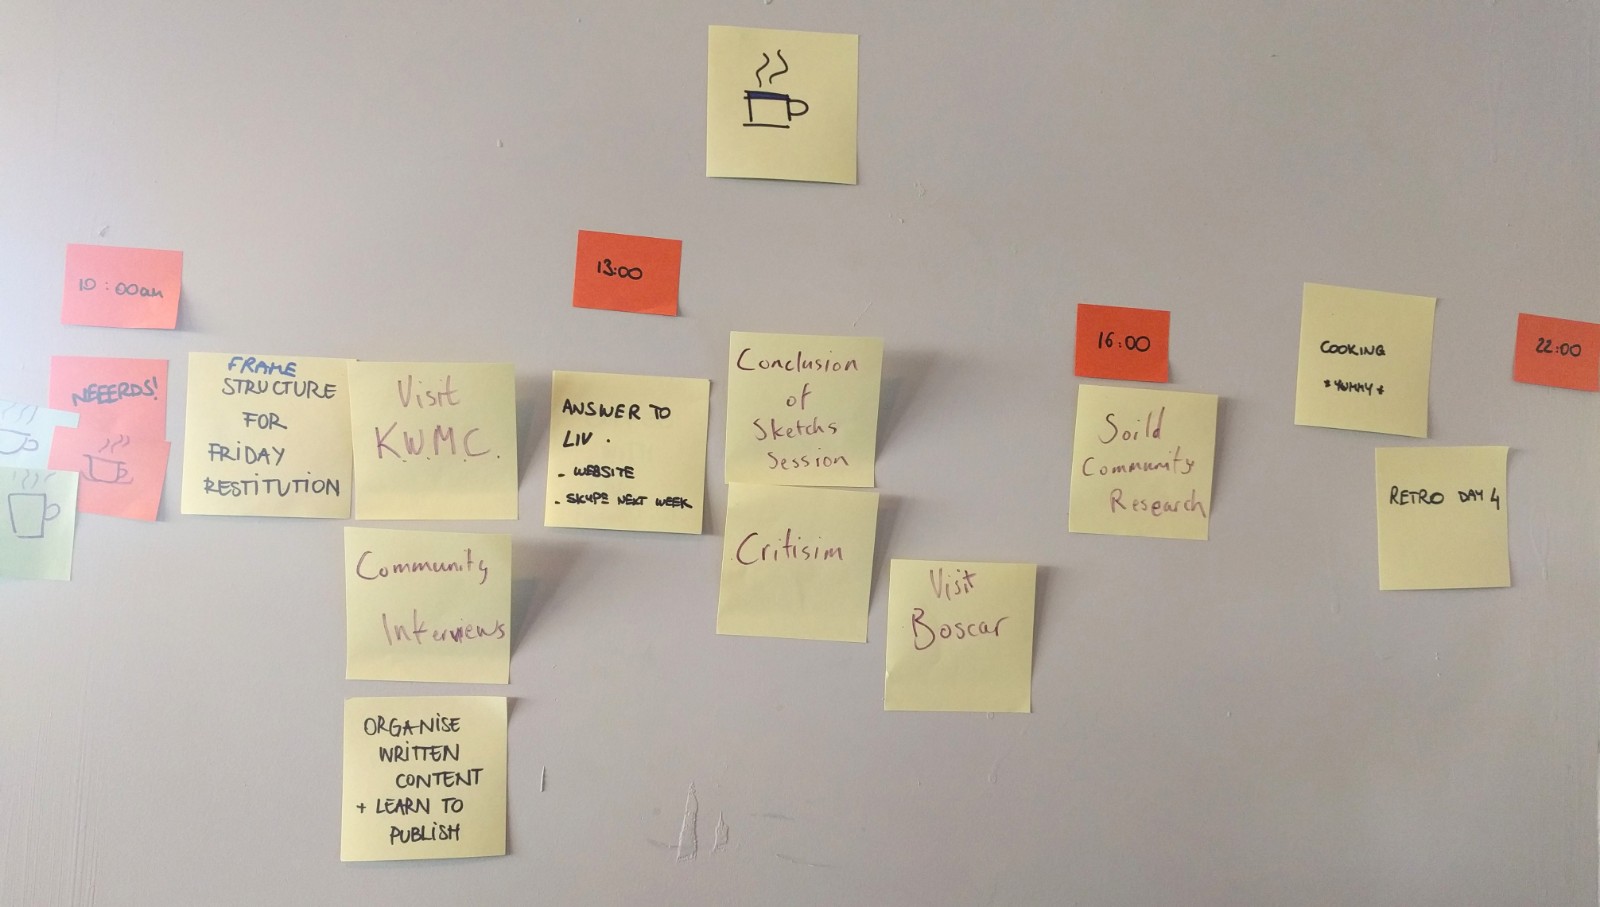 10:00am
NEEERDS!
FRAME
STRUCTURE
FOR
FRIDAY
RESTITUTION
Visit
K.W.M.C.
Community
Interviews
ORGANISE
WRITTEN
CONTENT
+ LEARN TO
PUBLISH
13:00
ANSWER TO
LIV.
- WEBSITE
- SKYPE NEXT WEEK
Conclusion
of
Sketchs
Session
Critisim
Visit
Boscar
16:00
Soild
Community
Research
COOKING
*YUMMY*
RETRO DAY 4
22:00